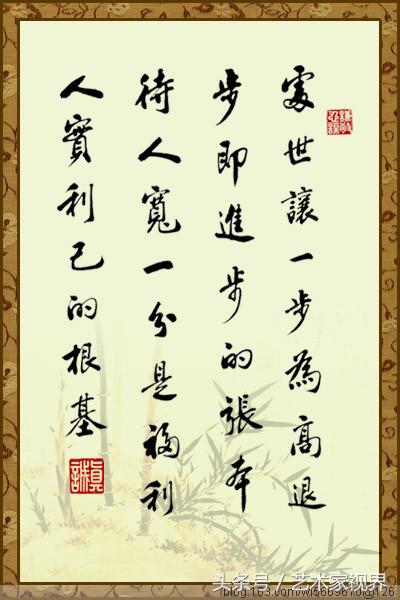 處世讓一步為高退
步即進步的張本
待人寬一分是福利
人實利己的根基
真誠
头条号 / 艺术家视界